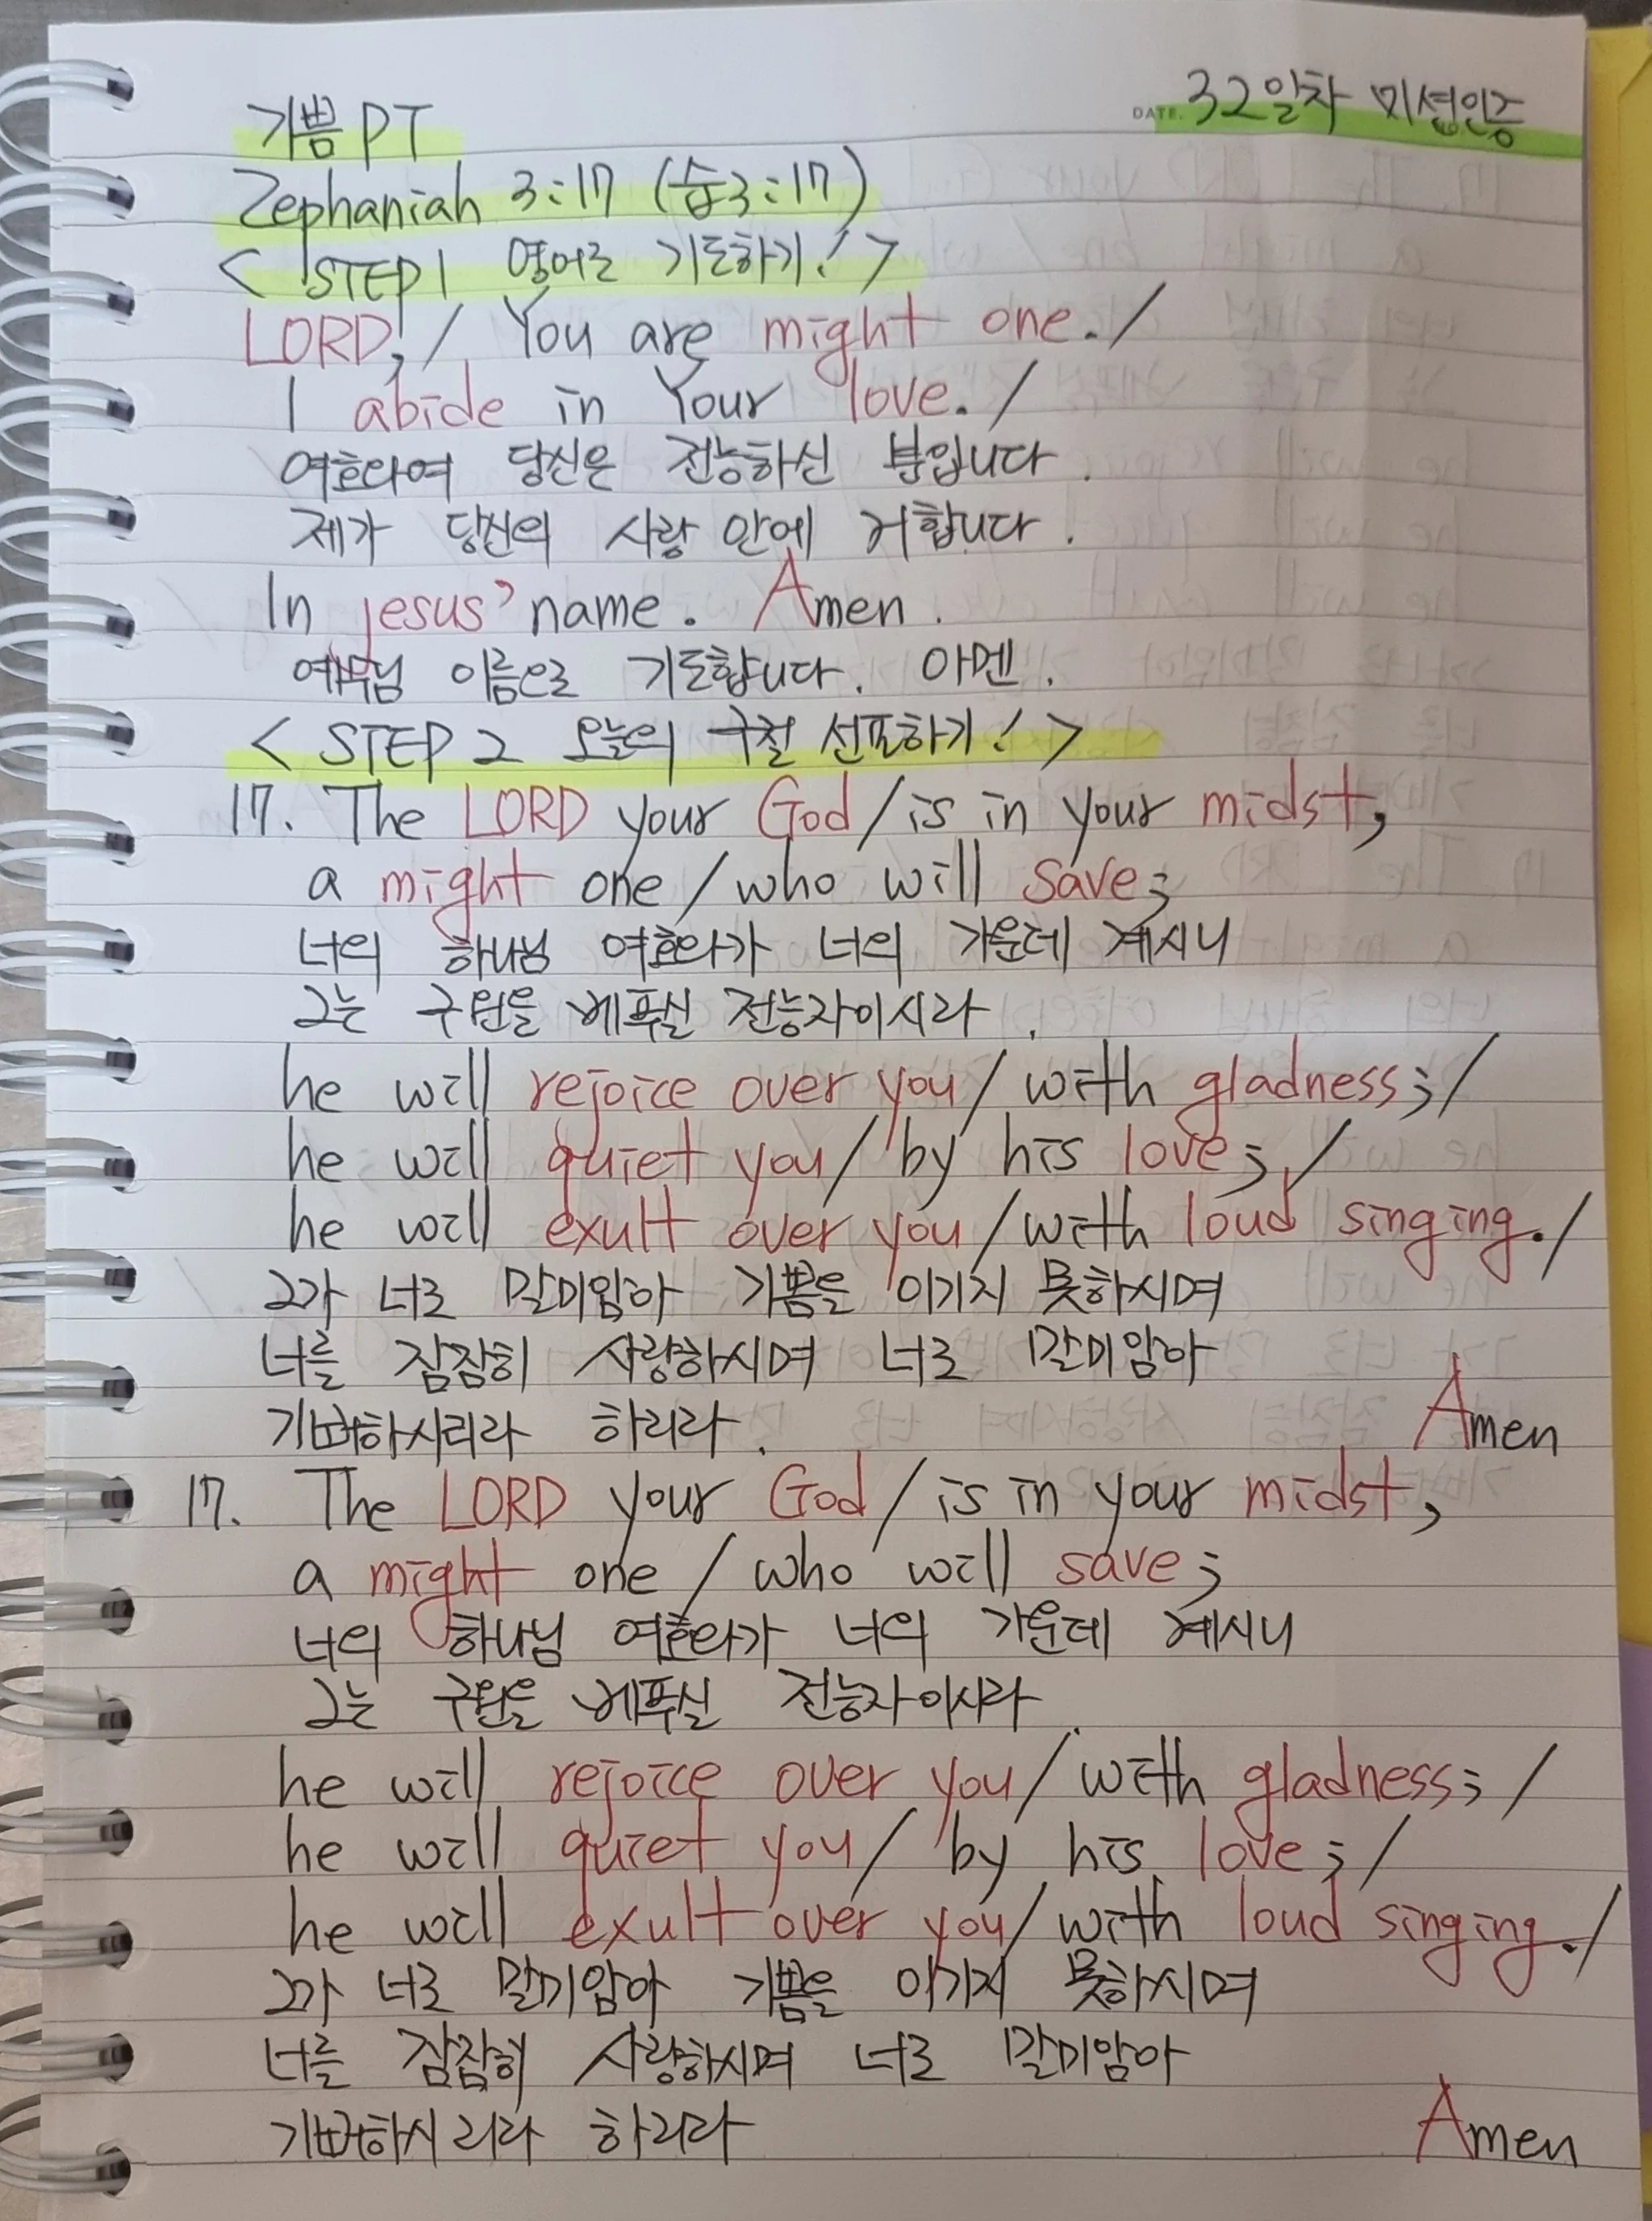 기쁨PT
DATE. 32일차 미션인증
Zephaniah 3:17 (습3:17)
< STEP1 영어로 기도하기! >
LORD, / You are might one. /
I abide in Your love. /
여호와여 당신은 전능하신 분입니다.
제가 당신의 사랑 안에 거합니다.
In jesus' name. Amen.
예수님 이름으로 기도합니다. 아멘.
< STEP 2 오늘의 구절 선포하기! >
17. The LORD your God / is in your midst,
a might one / who will save;
너의 하나님 여호와가 너의 가운데 계시니
그는 구원을 베푸실 전능자이시라.
he will rejoice over you / with gladness; /
he will quiet you / by his love; /
he will exult over you / with loud singing. /
그가 너로 말미암아 기쁨을 이기지 못하시며
너를 잠잠히 사랑하시며 너로 말미암아
기뻐하시리라 하리라.
Amen
17. The LORD your God / is in your midst,
a might one / who will save;
너의 하나님 여호와가 너의 가운데 계시니
그는 구원을 베푸실 전능자이시라.
he will rejoice over you / with gladness; /
he will quiet you / by his love; /
he will exult over you / with loud singing. /
그가 너로 말미암아 기쁨을 이기지 못하시며
너를 잠잠히 사랑하시며 너로 말미암아
기뻐하시리라 하리라
Amen